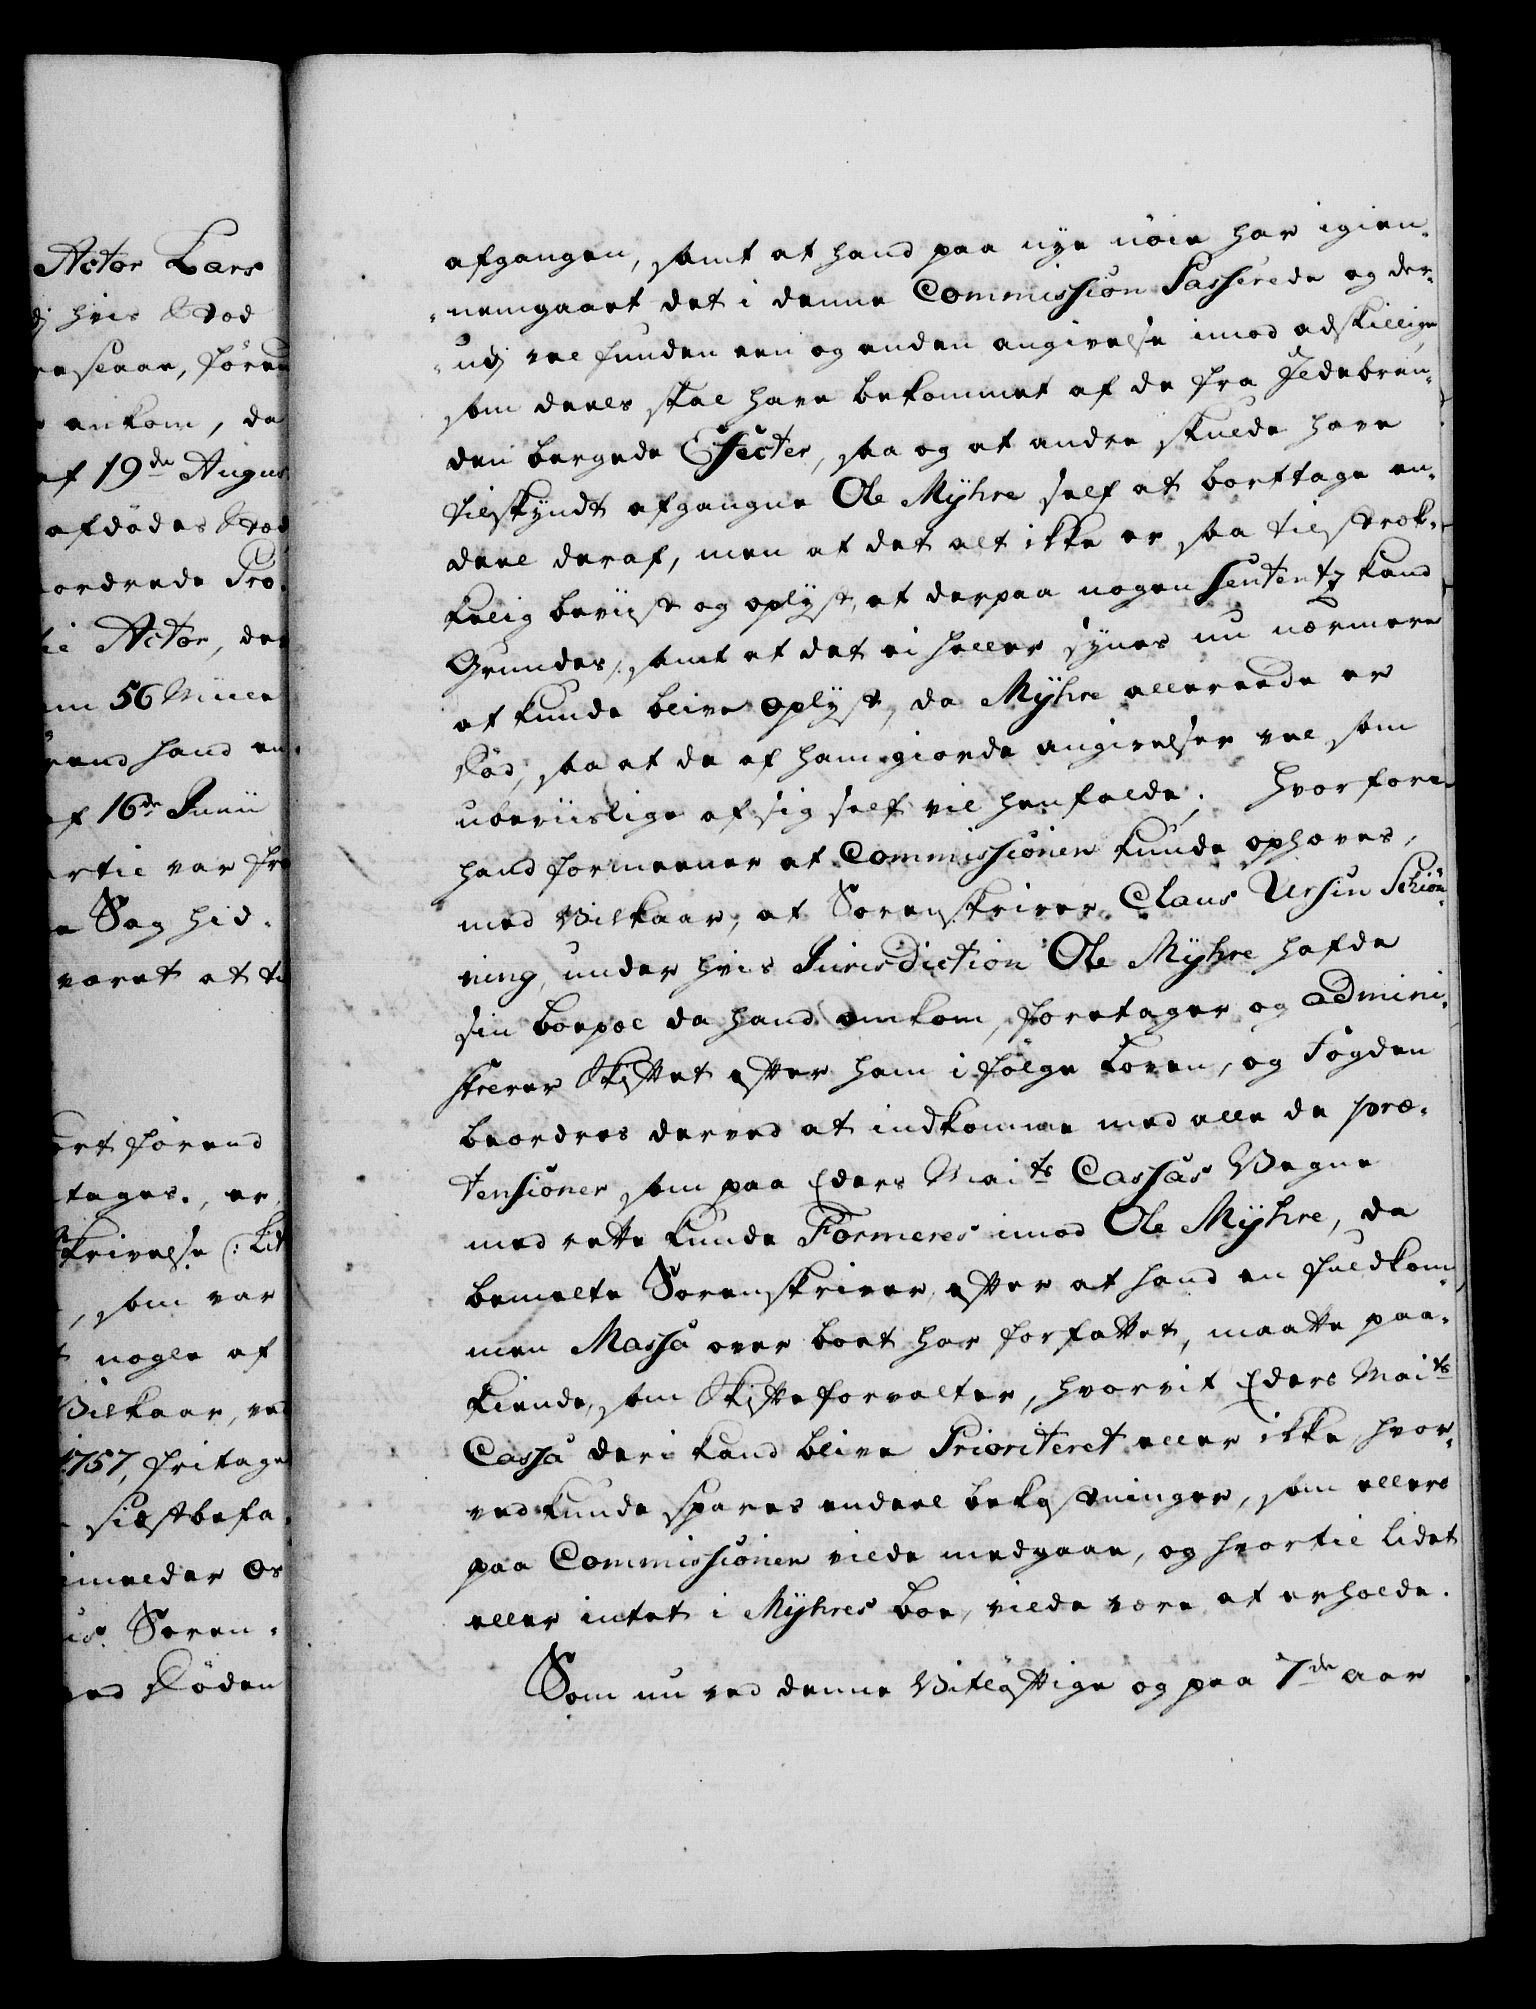 Actor Lars
dj hvis Stød
ankom, da
af 19de Augus
afdødes Stød
ordrede Pro-
Actor, der
56 Mülle
hand en-
af 16de Junii
var fra
Sag hid-
været at ti
ført førend
tages., er
Skrivelse (: Lit
, som var
nogle af
Vilkaar, ved
1757, fritage
siestbefa-
melder os
Soren-
ved Døden
afgangen, samt at hand paa nye nöie har igien-
nemgaaet det i denne Commission Passerede og der-
udj vel funden een og anden angivelse imod adskillige
som deels skal have bekommet af de fra Jldebran-
den bergede Effecter, saa og at andre skulde have
tilskyndt afgangne Ole Mÿhre self at borttage en-
deel deraf, men at det alt ikke er saa tilstræk-
kelig beviist og oplyst, at derpaa nogen Sententz kand
Grundes, samt at det ei heller synes nu nærmere
at kunde blive oplyst, da Mÿhre allereede er
död, saa at de af ham giorde angivelser vel som
ubeviislige af sig self vil henfalde; Hvorfore
hand formeener at Commissionen kunde ophæves,
med Vilkaar, at Sorenskriver Claus Ursin Schiön-
ning, under hvis Jurisdiction Ole Mÿhre hafde
sin boepæl da hand omkom, foretager og admini-
strerer Skiftet efter ham i fölge Loven, og Fogden
beordres derved at indkomme med alle de præ-
tensioner som paa Eders Maits Cassas Vegne
med rette kunde Formeres imod Ole Mÿhre, da
bemelte Sorenskriver, efter at hand en fuldkom-
men Massa over boet har forfattet, maatte paa-
kiende, som Skifteforvalter, hvorvit Eders Maits
Cassa deri kand blive Prioriteret eller ikke, hvor-
ved kunde spares endeel bekostninger, som ellers
paa Commissionen vilde medgaae, og hvortil lidet
eller intet i Mÿhres boe, vilde være at erholde.
Som nu ved denne Vitlöftige og paa 7de aar